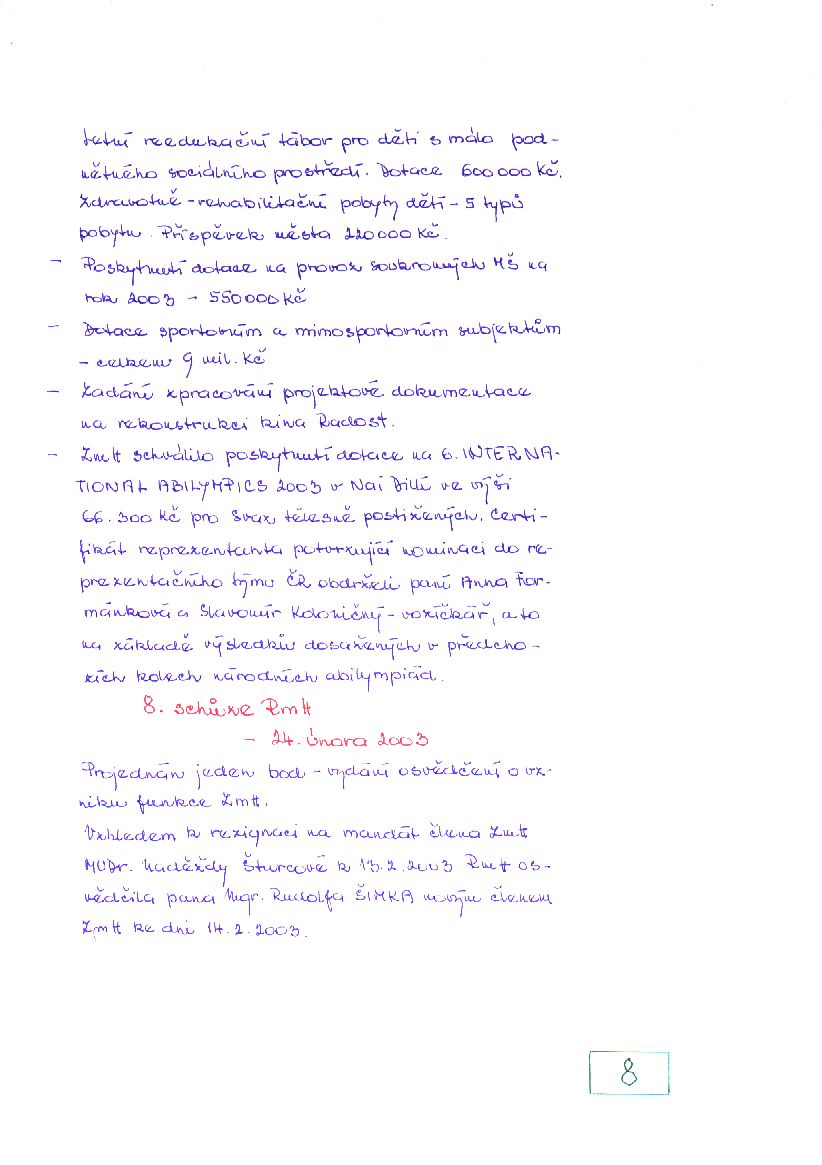 letní reedukační tábor pro děti s málo pod-
nětného sociálního prostředí. Dotace 600 000 Kč.
Zdravotně-rehabilitační pobyty dětí - 5 typů
pobytu. Příspěvek města 220 000 Kč.
- Poskytnutí dotace na provoz soukromých MŠ na
rok 2003 - 550 000 Kč
- Dotace sportovním a mimosportovním subjektům
- celkem 9 mil. Kč
- Zadání zpracování projektové dokumentace
na rekonstrukci kina Radost.
- ZmH schválilo poskytnutí dotace na 6. INTERNA-
TIONAL ABILYMPICS 2003 v Naí Dillí ve výši
66.300 Kč pro Svaz tělesně postižených. Certi-
fikát reprezentanta potvrzující nominaci do re-
prezentačního týmu ČR obdrželi paní Anna For-
mánková a Slavomír Koloničný - vozíčkář, a to
na základě výsledků dosažených v předcho-
zích kolech národních abilympiád.
8. schůze RmH
- 24. února 2003
Projednán jeden bod - vydání osvědčení o vz-
niku funkce ZmH.
Vzhledem k rezignaci na mandát člena ZmH
MUDr. Naděždy Šturcové k 13.2.2003 RmH os-
vědčila pana Mgr. Rudolfa ŠIMKA novým členem
ZmH ke dni 14.2.2003.
8